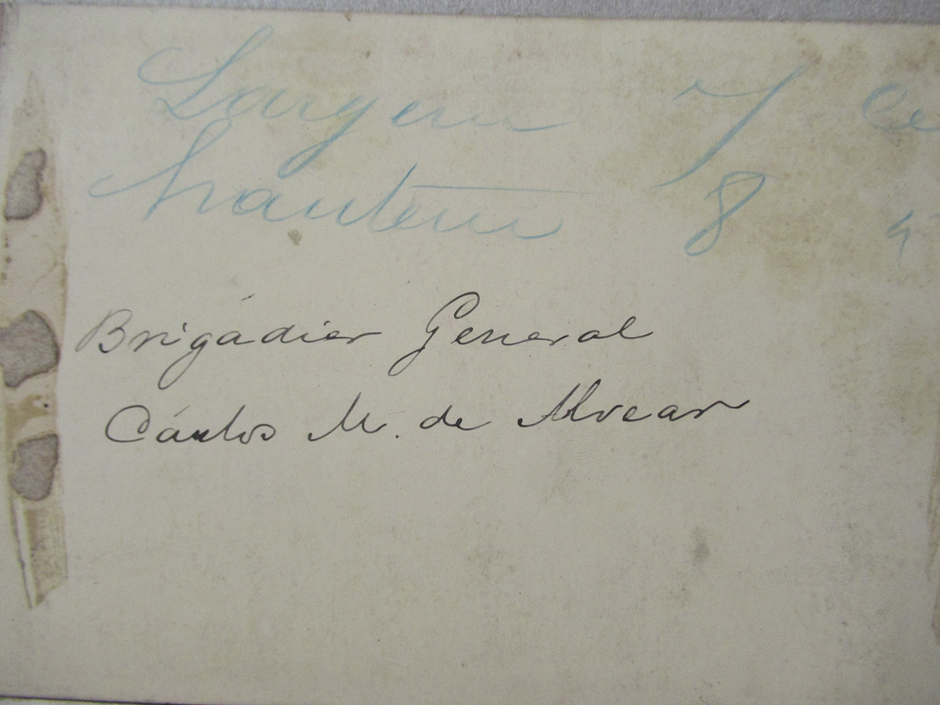 Largeur
hauteur 8 "
Brigadier General
Cárlos M. de Alvear